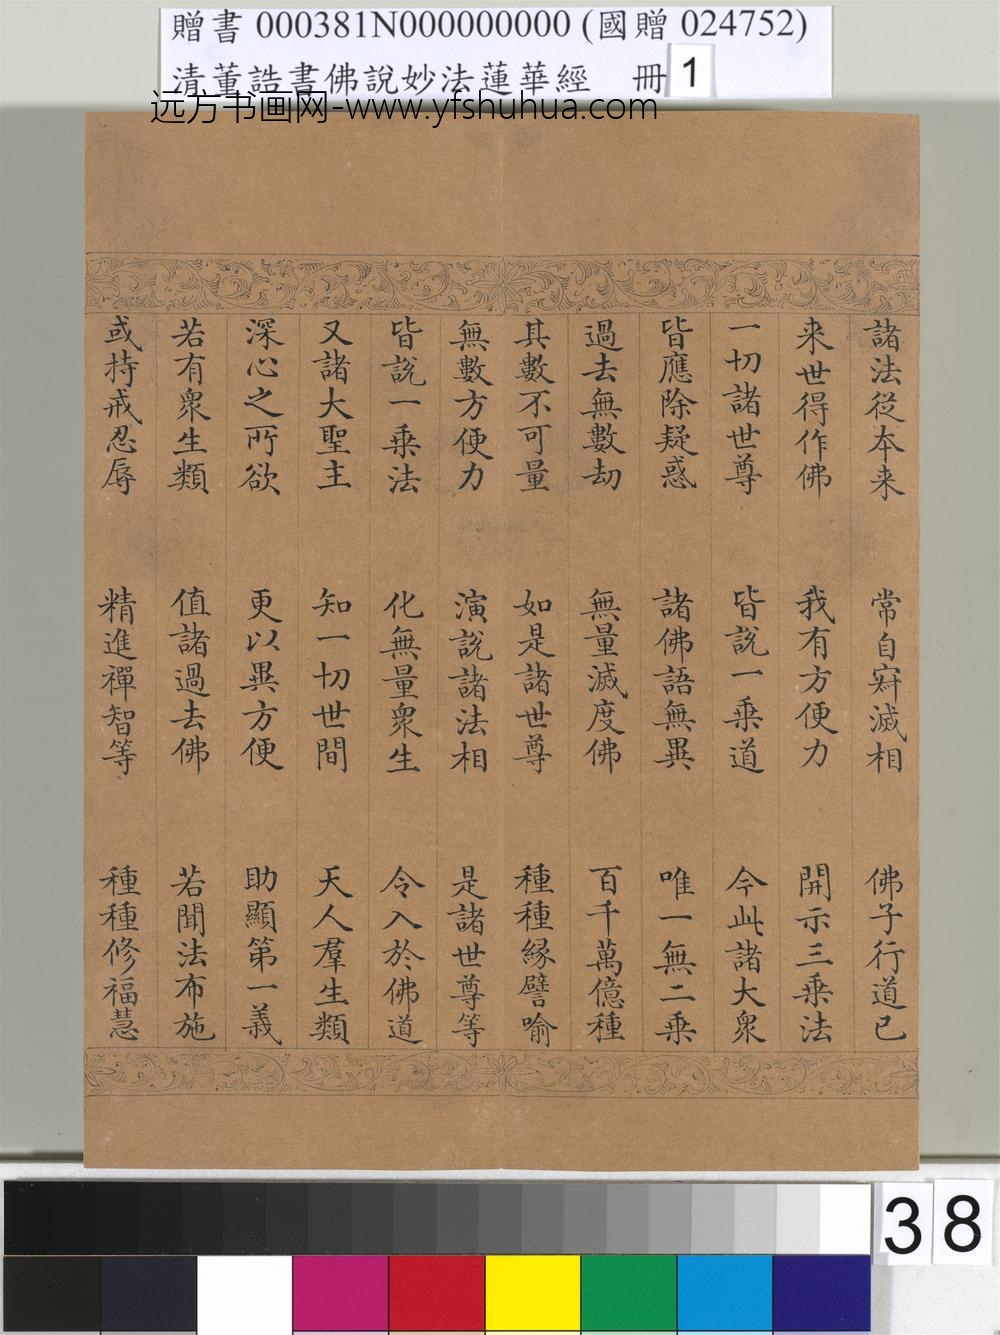 贈書 000381N000000000 (國贈 024752)
清董誥書佛說妙法蓮華經 冊 1
远方书画网-www.yfshuhua.com
諸法從本来 常自寂滅相 佛子行道已
来世得作佛 我有方便力 開示三乗法
一切諸世尊 皆說一乗道 今此諸大衆
皆應除疑惑 諸佛語無異 唯一無二乗
過去無數劫 無量滅度佛 百千萬億種
其數不可量 如是諸世尊 種種緣譬喻
無數方便力 演說諸法相 是諸世尊等
皆說一乗法 化無量衆生 令入於佛道
又諸大聖主 知一切世間 天人羣生類
深心之所欲 更以異方便 助顯第一義
若有衆生類 值諸過去佛 若聞法布施
或持戒忍辱 精進禪智等 種種修福慧
38